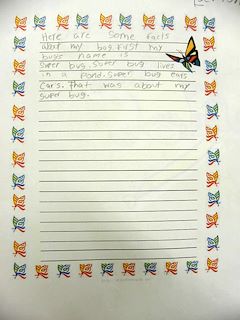 Here are some facts
about my bug. First my
bugs name is
Super bug. Super bug lives
in a pond. Super bug eats
Cars. That was about my
super bug.